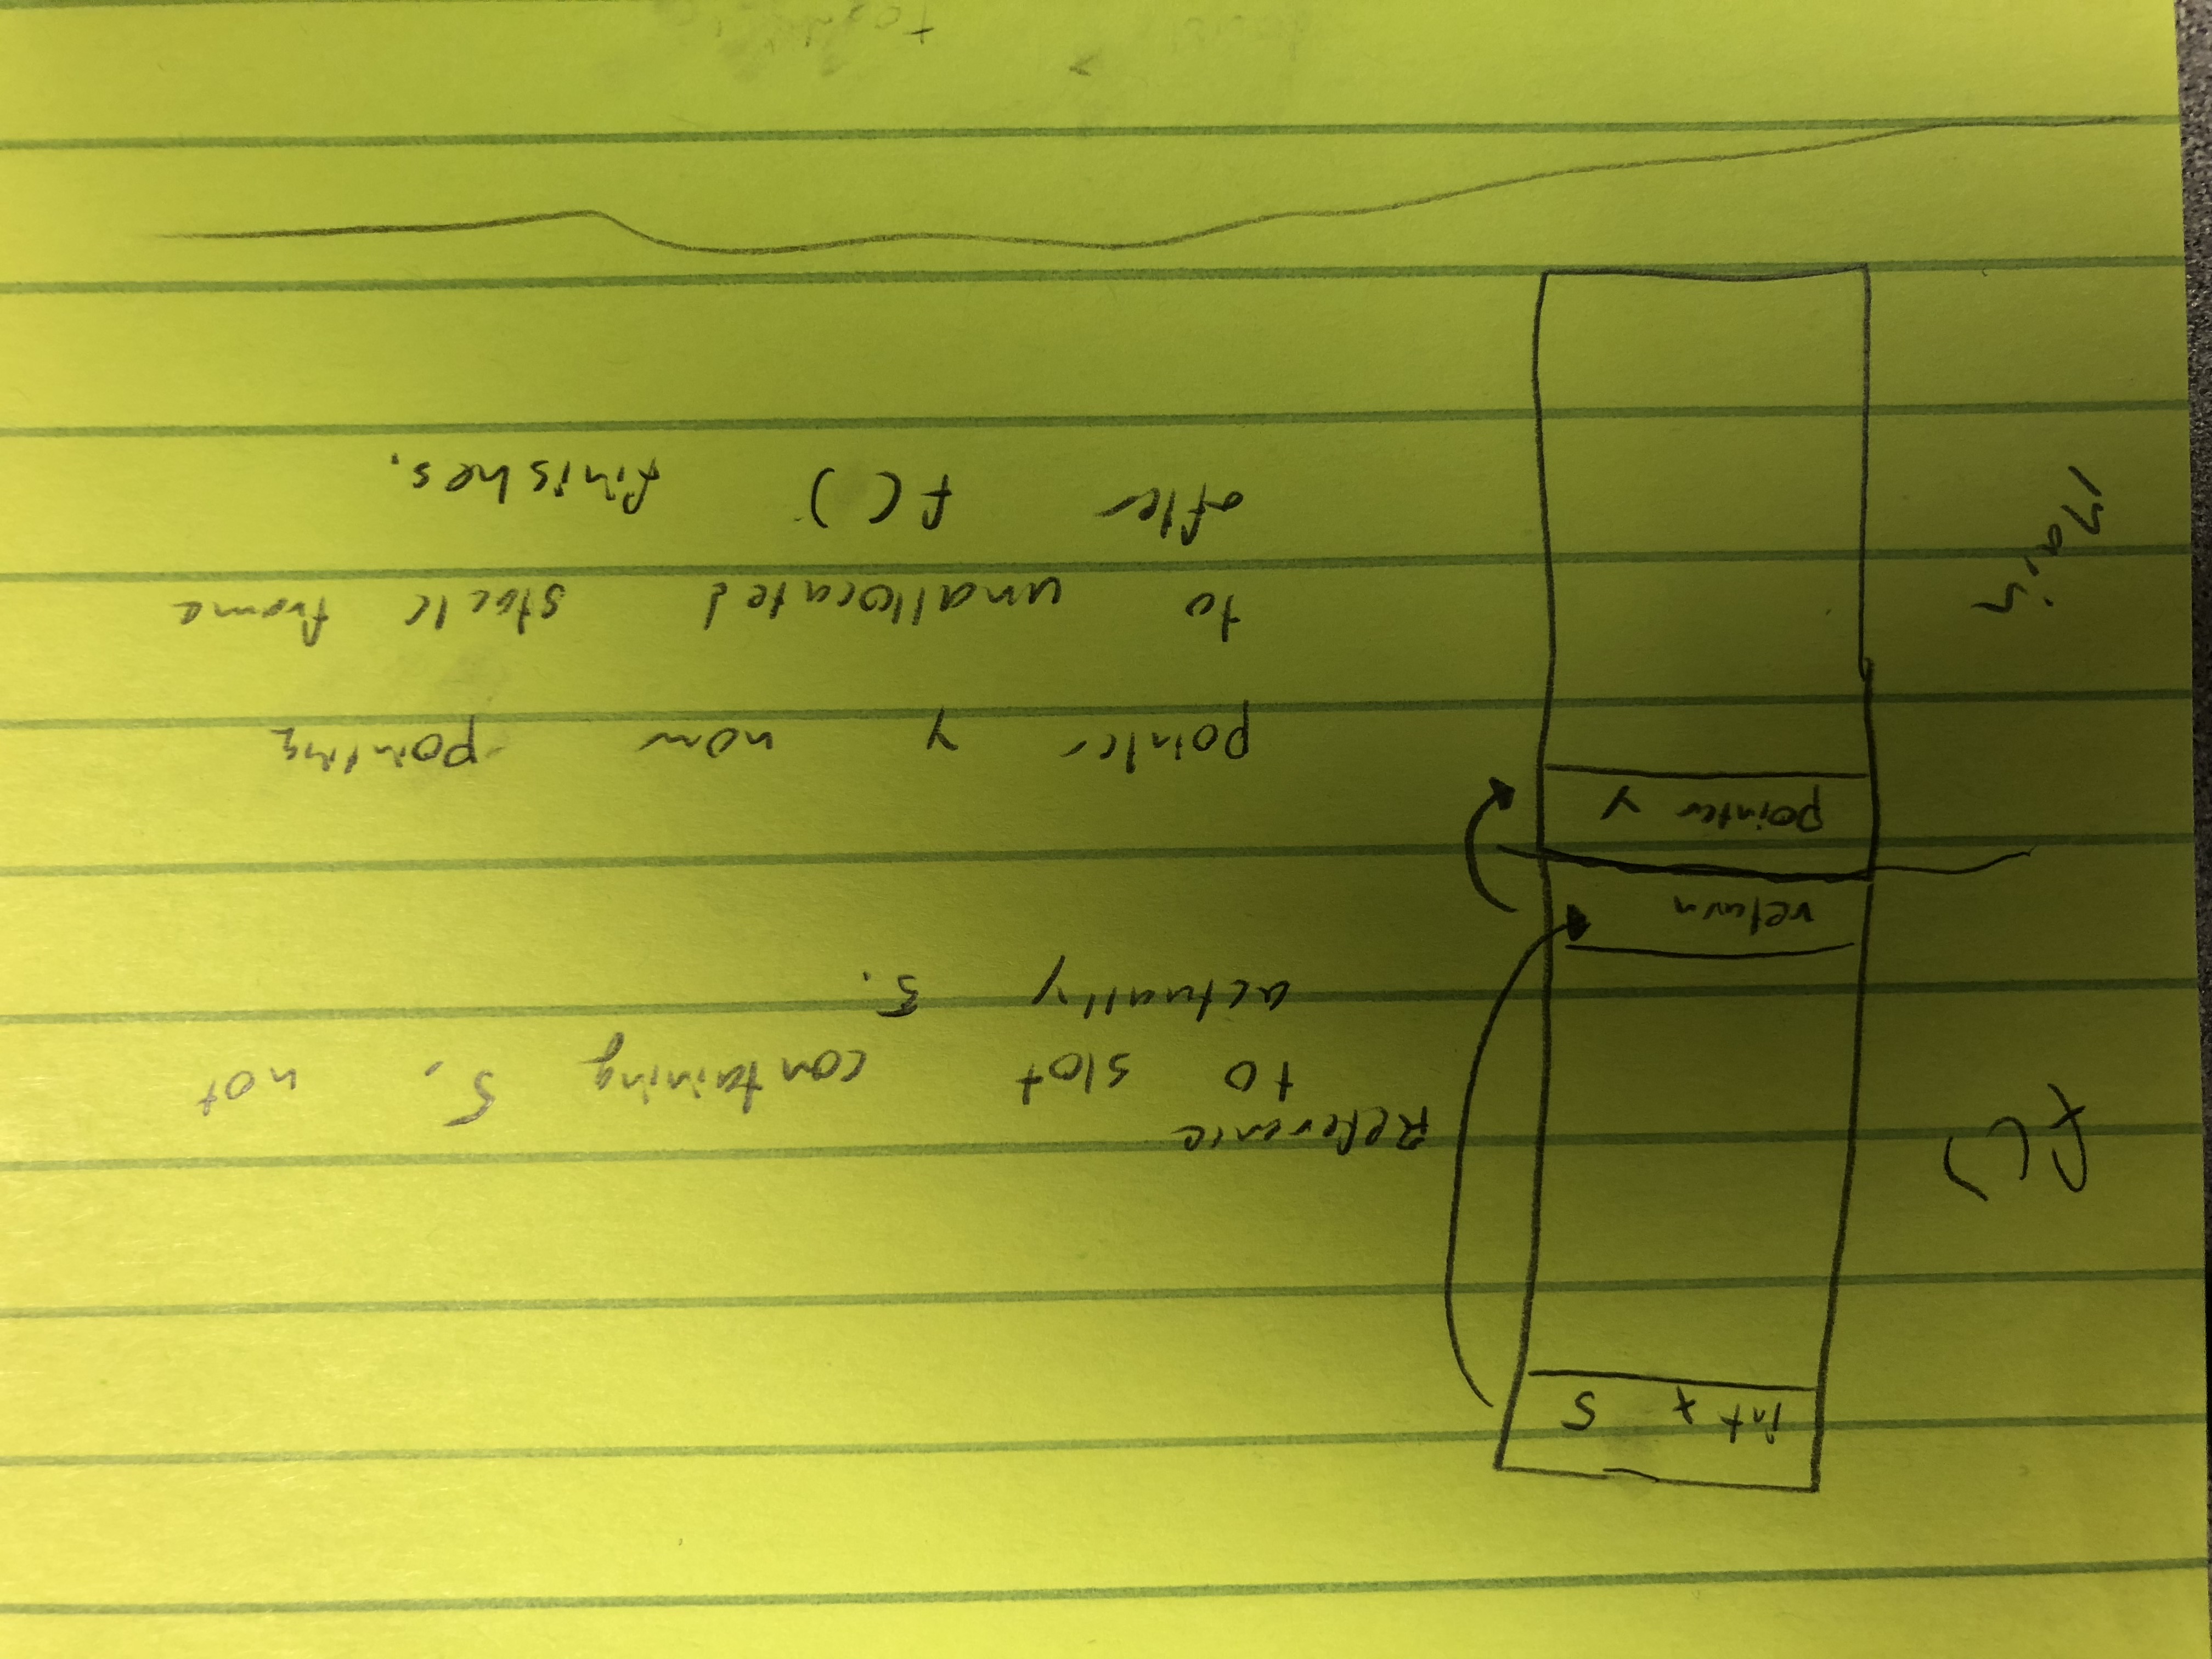 int x 5
f()
Reference
to slot containing 5, not
actually 5.
return
pointer y
pointer y now pointing
to unallocated stack frame
after f() finishes.
Main